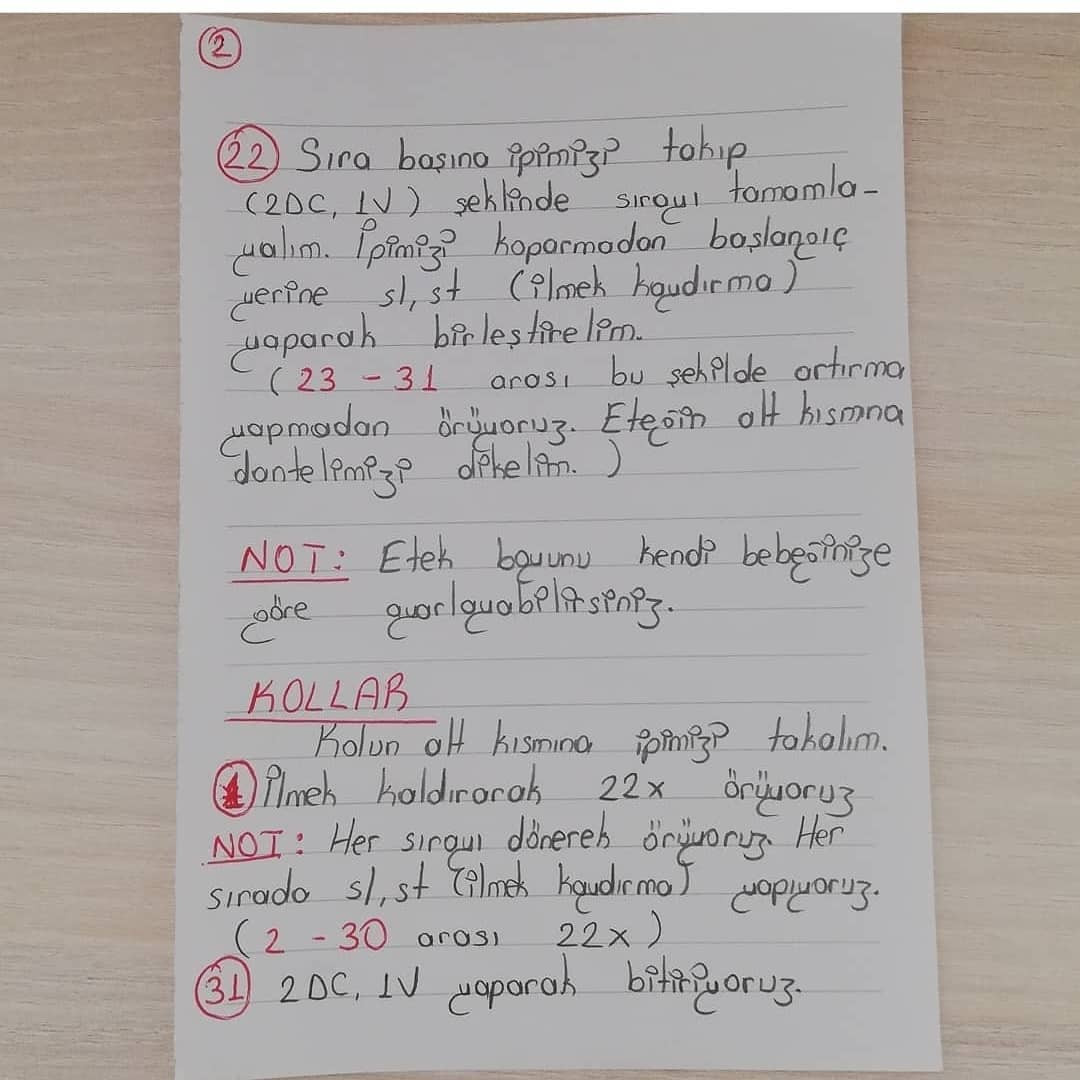 2
22 Sıra başına ipimizi takıp
(2DC, 1V) şeklinde sırayı tamamla-
yalım. İpimizi koparmadan başlangıç
yerine sl, st (ilmek kaydırma)
yaparak birleştirelim.
(23 - 31 arası bu şekilde artırma
yapmadan örüyoruz. Eteğin alt kısmna
dantelimizi dikelim.)
NOT: Etek boyunu kendi bebeğinize
göre ayarlayabilirsiniz.
KOLLAR
Kolun alt kısmına ipimizi takalım.
1 İlmek kaldırarak 22x örüyoruz
NOT: Her sırayı dönerek örüyoruz. Her
sırada sl, st (ilmek kaydırma) yapıyoruz.
(2 - 30 arası 22x)
31 2DC, 1V yaparak bitiriyoruz.